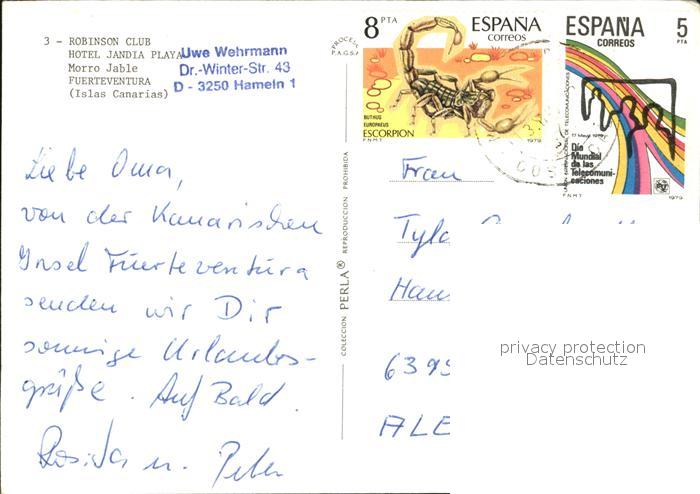 3 - ROBINSON CLUB
HOTEL JANDIA PLAYA
Morro Jable
FUERTEVENTURA
(Islas Canarias)
Uwe Wehrmann
Dr.-Winter-Str. 43
D - 3250 Hameln 1
8 PTA
ESPAÑA
correos
BUTHUS
EUROPAEUS
ESCORPION
F.N.M.T.
1979
ESPAÑA
CORREOS
5
PTA
17 Mayo 1979
Día
Mundial
de las
Telecomuni-
caciones
F.N.M.T.
1979
Liebe Oma,
von der Kanarischen
Insel Fuerteventura
senden wir Dir
sonnige Urlaubs-
grüße. Auf Bald.
u. Peter
COLECCION PERLA® REPRODUCCION PROHIBIDA
Frau
privacy protection
Datenschutz